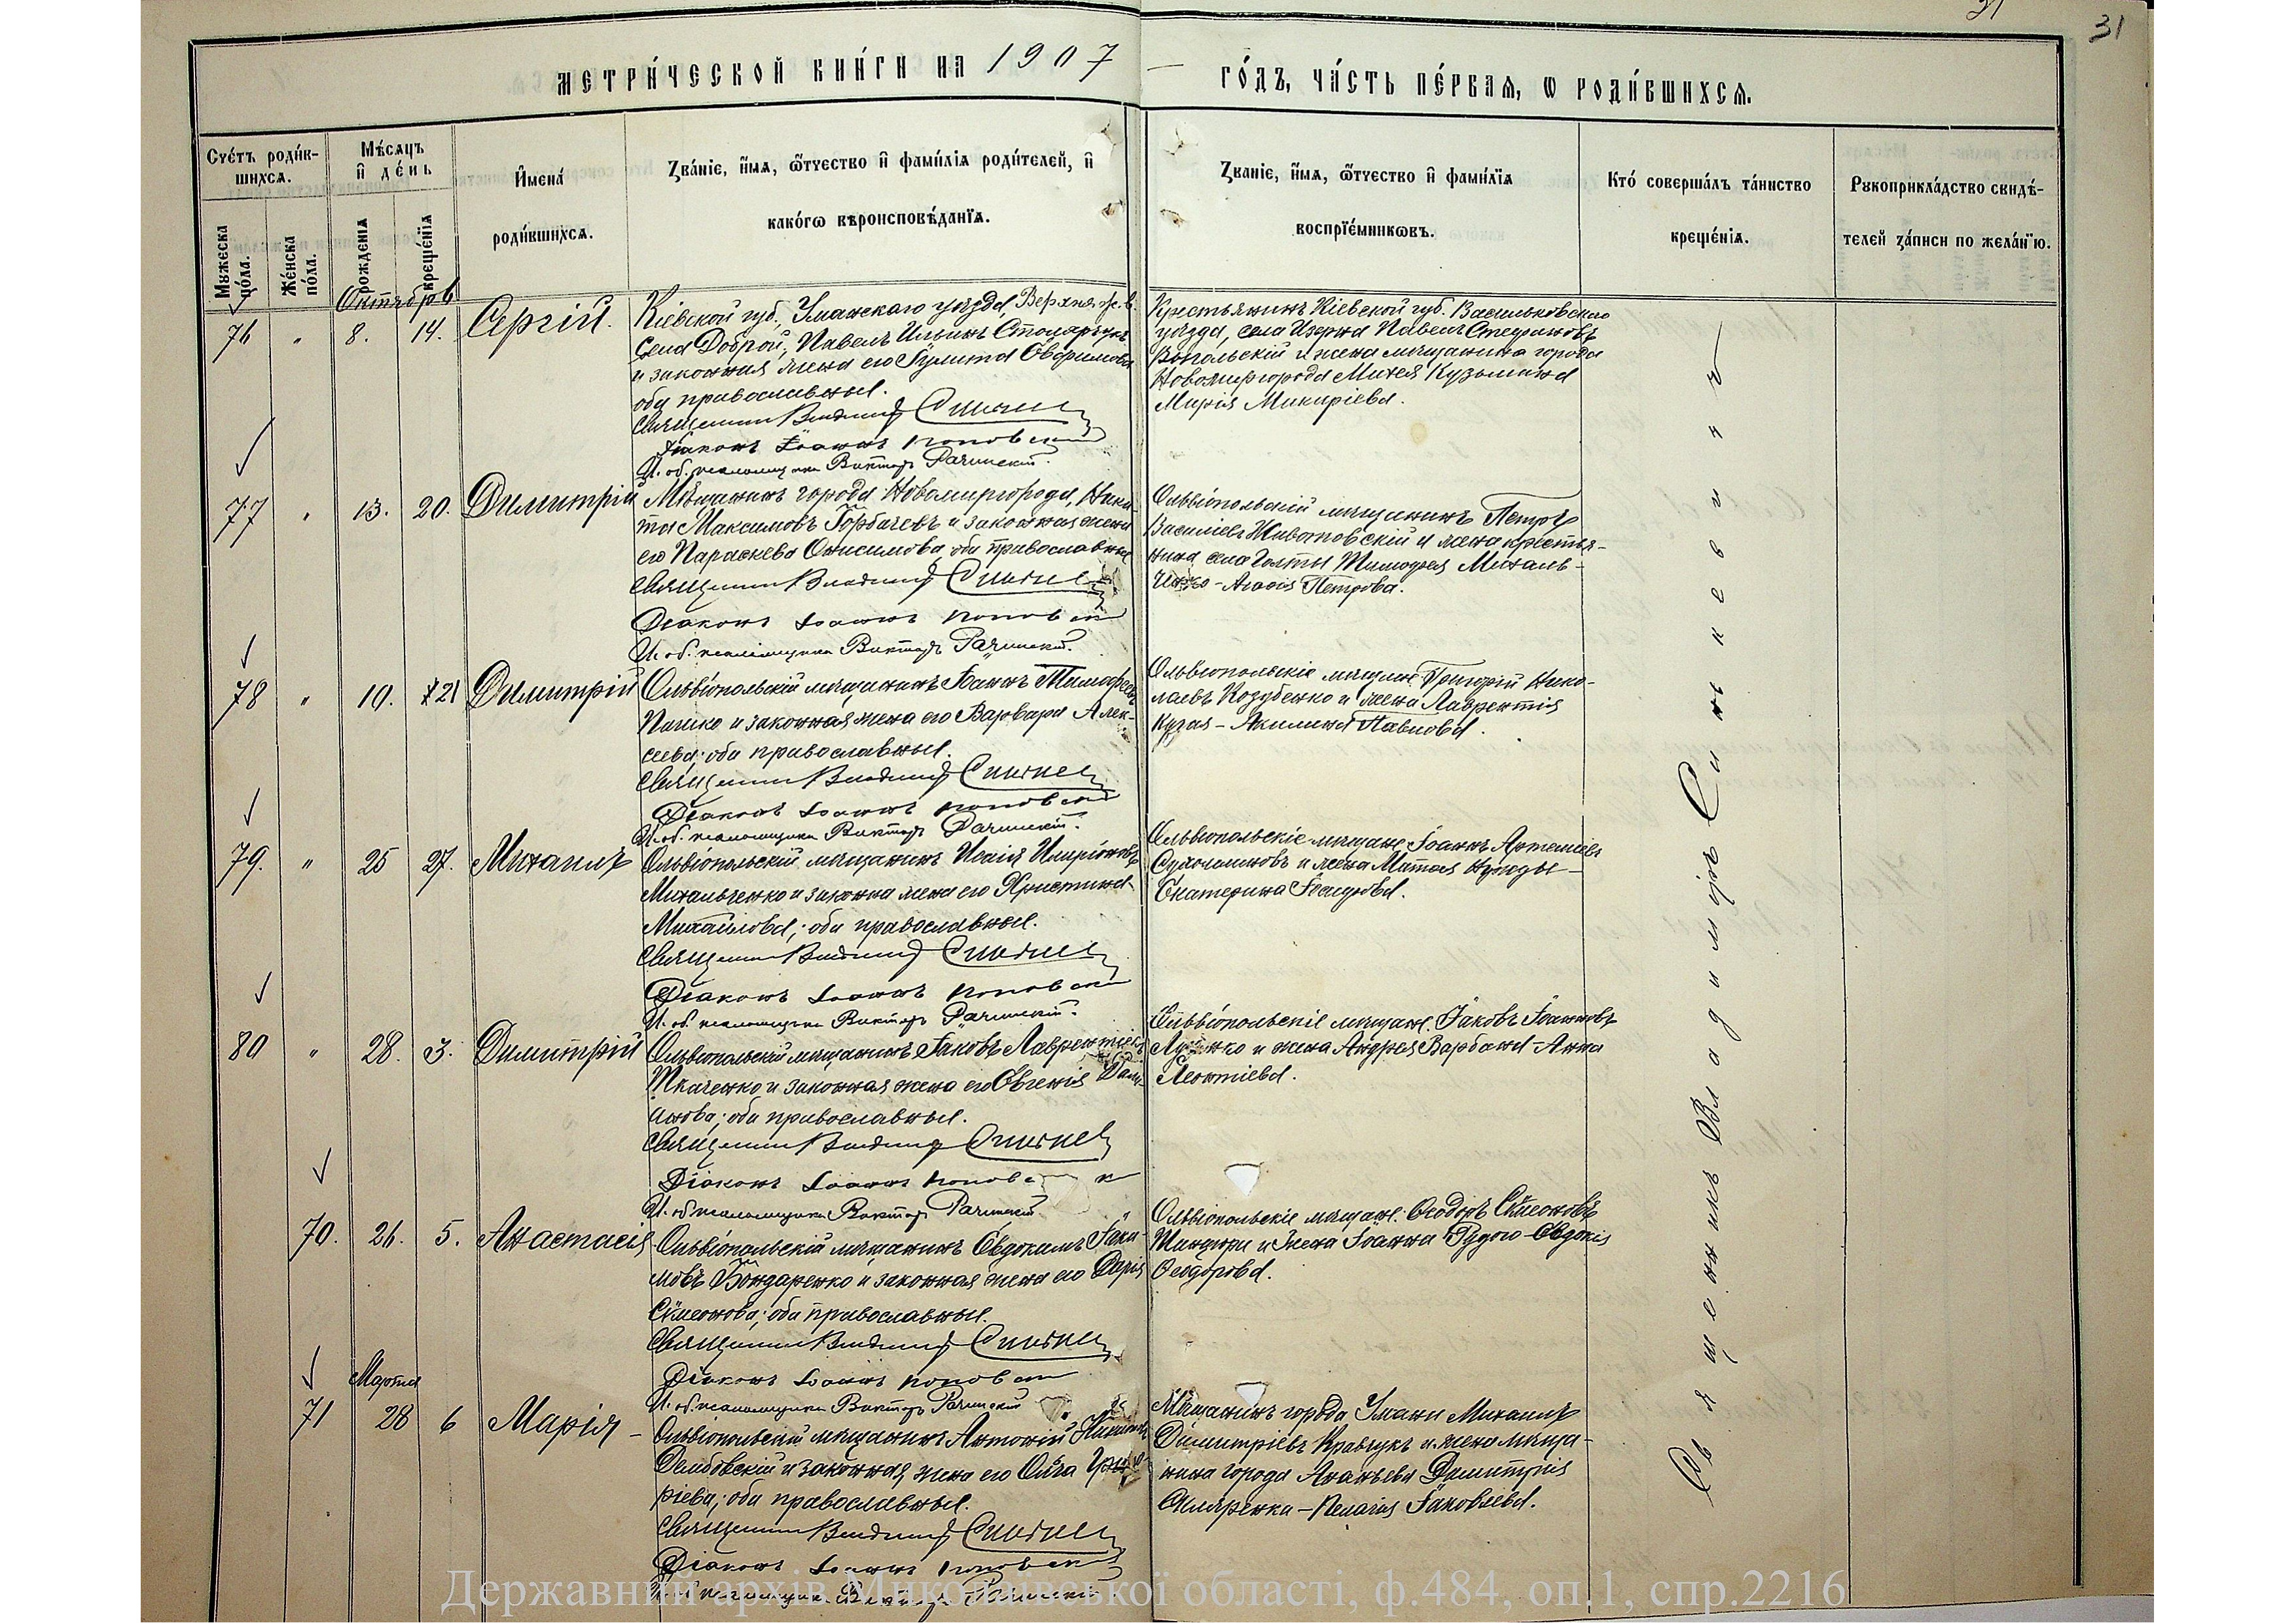 31
МЕТРИ́ЧЕСКОЙ КНИ́ГИ НА 1907 ГО́ДЪ, ЧА́СТЬ ПЕ́РВАЯ, Ѡ РОДИ́ВШИХСЯ.
Счетъ роди́вшихся.
Мужеска по́ла.
Же́нска по́ла.
Мѣсяцъ и де́нь
рожденія
крещенія
Имена́
роди́вшихся.
Зва́ніе, имя, ѿчество и фами́лія роди́телей, и
како́гѡ вѣроисповѣ́данїя.
Званіе, имя, ѿчество и фами́лїя
воспрїе́мникѡвъ.
Кто́ соверша́лъ та́инство
креще́нія.
Рукоприкла́дство свидѣ́-
телей за́писи по жела́нїю.
Октябрь
76 " 8. 14. Сергій.
Кіевской губ., Уманскаго уѣзда,
села Доброй, Павелъ Ильинъ
и законная жена его
оба православные.
Священникъ Владимиръ Синькевичъ
Діаконъ Іоаннъ Поповскій
И. об. псаломщика Викторъ Рачинскій.
Крестьянинъ Кіевской губ. Васильковскаго
уѣзда, села Павелъ Стефановъ
и жена мѣщанина города
Новомиргорода Михея Кузьмина
Марія Макаріева.
77 " 13. 20. Димитрій
Мѣщанинъ города Новомиргорода, Ники-
та Максимовъ Горбачевъ и законная жена
его Параскева Онисимова, оба православные
Священникъ Владимиръ Синькевичъ
Діаконъ Іоаннъ Поповскій
И. об. псаломщика Викторъ Рачинскій.
Ольвіопольскій мѣщанинъ Петръ
Василіевъ Животовскій и жена крестья-
нина села Голты Тимофея Михаль-
ченко - Агафія Петрова.
78 " 19. 21 Димитрій
Ольвіопольскій мѣщанинъ Іоаннъ Тимофеевъ
и законная жена его Варвара Алек-
сеева; оба православные.
Священникъ Владимиръ Синькевичъ
Діаконъ Іоаннъ Поповскій
И. об. псаломщика Викторъ Рачинскій.
Ольвіопольскіе мѣщане Григорій Нико-
лаевъ Козубенко и жена Лаврентія
- Акилина Павлова.
79. " 25 27. Михаилъ
Ольвіопольскій мѣщанинъ Исаія Иларіоновъ
Михальченко и законна жена его Христина
Михайлова; оба православные.
Священникъ Владимиръ Синькевичъ
Діаконъ Іоаннъ Поповскій
И. об. псаломщика Викторъ Рачинскій.
Ольвіопольскіе мѣщане Іоаннъ Артеміевъ
и жена
Екатерина Исидорова.
80 " 28. 3. Димитрій
Ольвіопольскій мѣщанинъ Іаковъ Лаврентіевъ
Ткаченко и законная жена его Евгенія Дамі-
анова; оба православные.
Священникъ Владимиръ Синькевичъ
Діаконъ Іоаннъ Поповскій
И. об. псаломщика Викторъ Рачинскій
Ольвіопольскіе мѣщане. Іаковъ Іоанновъ
и жена Андрея Варбана - Анна
Леонтіева.
70. 26. 5. Анастасія
Ольвіопольскій мѣщанинъ Евдокимъ Іаки-
мовъ Бондаренко и законная жена его Дарія
Симеонова; оба православные.
Священникъ Владимиръ Синькевичъ
Діаконъ Іоаннъ Поповскій
И. об. псаломщика Викторъ Рачинскій
Ольвіопольскіе мѣщане: Феодоръ Симеоновъ
и жена Іоанна Рудого - Евдокія
Феодорова.
Марта
71 28 6 Марія -
Ольвіопольскій мѣщанинъ Антоній
Дембовскій и законная жена его Ольга
ріева; оба православные.
Священникъ Владимиръ Синькевичъ
Діаконъ Іоаннъ Поповскій
И. об. псаломщика Викторъ Рачинскій
Мѣщанинъ города Умани Михаилъ
Димитріевъ Кравчукъ и жена мѣща-
нина города Ананьева Димитрія
- Пелагія Іаковлева.
Священникъ Владимиръ Синькевичъ
Державний архів Миколаївської області, ф.484, оп.1, спр.2216